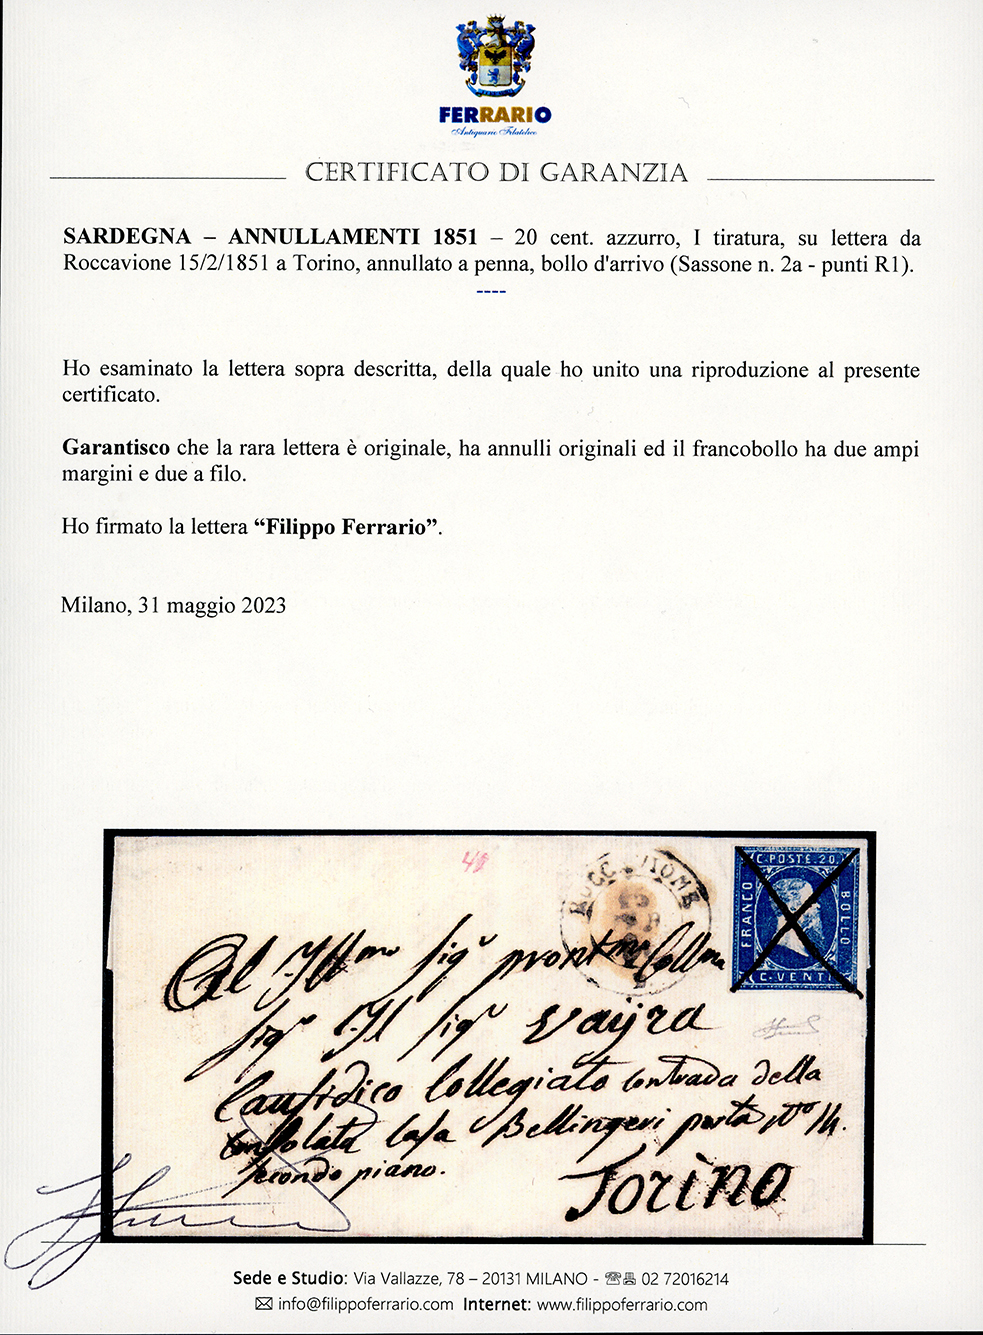 FERRARIO
Antiquario Filatelico
CERTIFICATO DI GARANZIA
SARDEGNA – ANNULLAMENTI 1851 – 20 cent. azzurro, I tiratura, su lettera da
Roccavione 15/2/1851 a Torino, annullato a penna, bollo d'arrivo (Sassone n. 2a - punti R1).
----
Ho esaminato la lettera sopra descritta, della quale ho unito una riproduzione al presente
certificato.
Garantisco che la rara lettera è originale, ha annulli originali ed il francobollo ha due ampi
margini e due a filo.
Ho firmato la lettera “Filippo Ferrario”.
Milano, 31 maggio 2023
C. POSTE. 20.
FRANCO
BOLLO
C. VENTI
Al Ill.mo sig.r
sig.r Il sig.r Vayra
Causidico Collegiato Contrada della
Consolata Casa Bellingeri porta N.o 14.
secondo piano.
Torino
Sede e Studio: Via Vallazze, 78 – 20131 MILANO - 02 72016214
info@filippoferrario.com Internet: www.filippoferrario.com